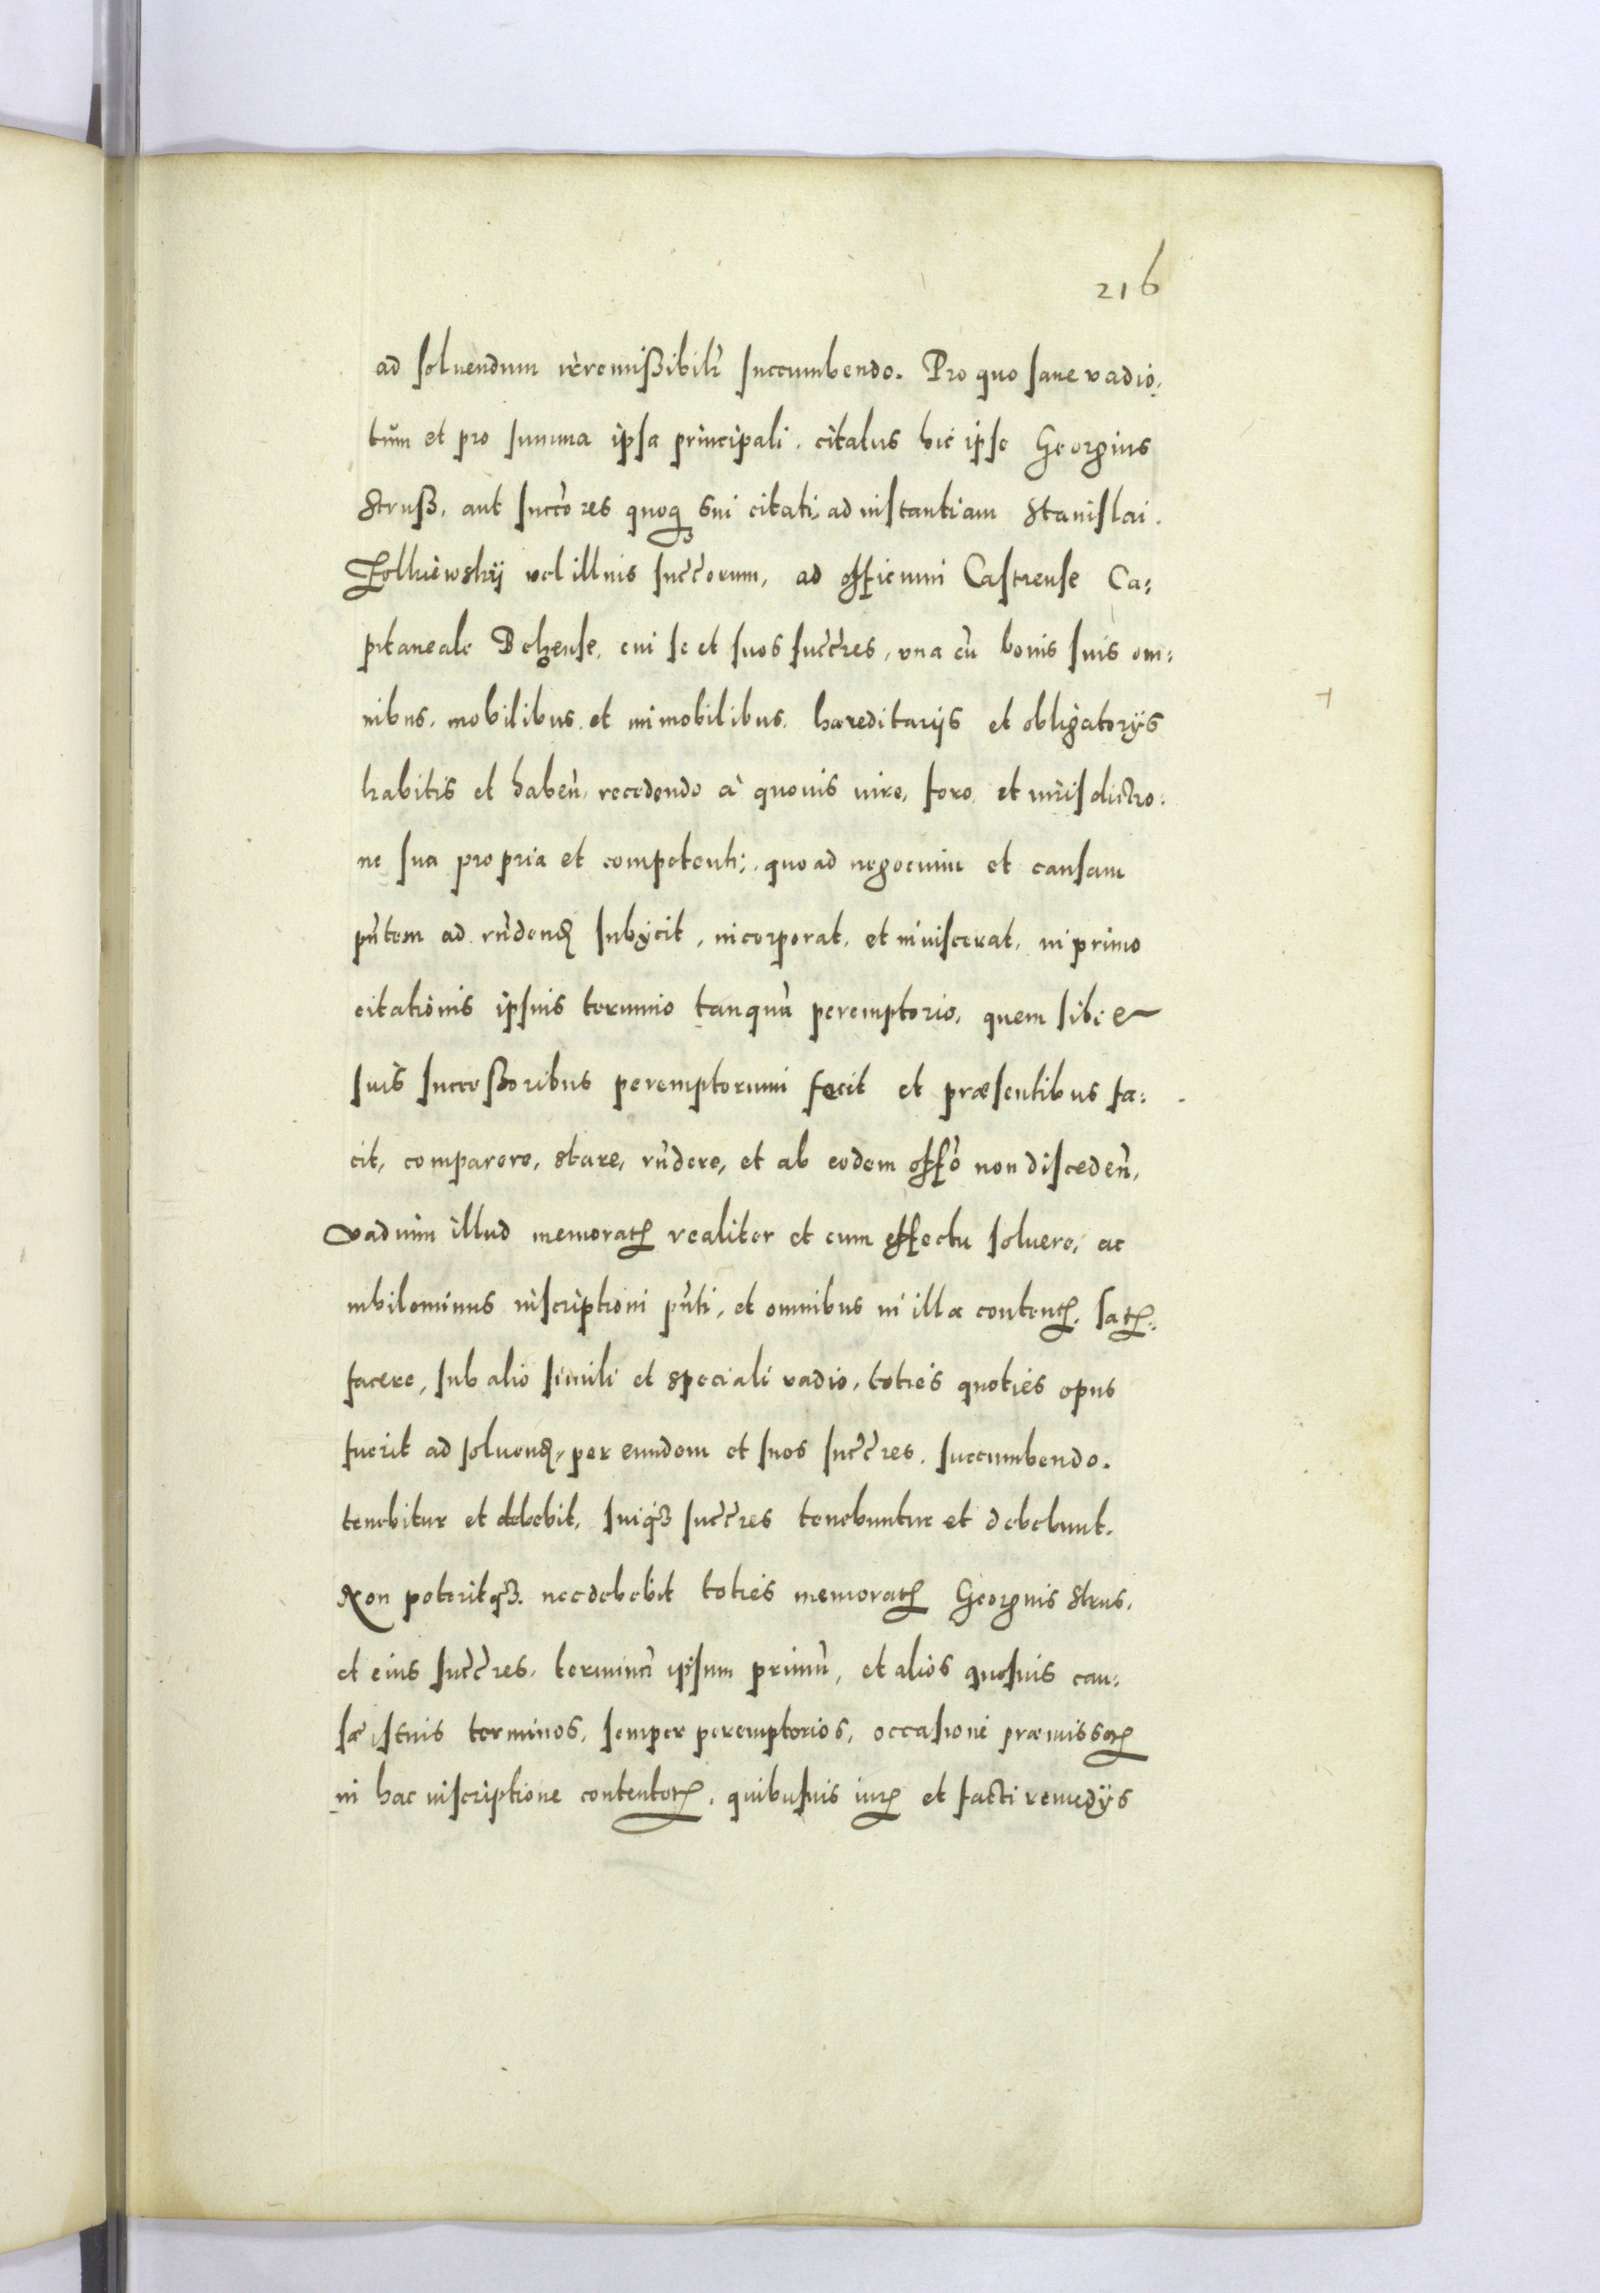 216
ad soluendum irremißibilr̃ succumbendo. Pro quo sane vadio,
tum et pro summa ipsa principali, citatus hic ipse Georgius
Struß, aut succ̃ores quoqʒ sui citati, ad instantiam Stanislai
Zolkiewskij vel illius succ̃orum, ad officium Castrense Ca:
pitaneale Belzense, cui se et suos succ̃res, vna cũ bonis suis om:
nibus, mobilibus et immobilibus, hæreditarijs et obligatorijs
habitis et habeñ, recedendo à quouis iure, foro, et iurisdictio:
ne sua propria et competenti, quoad negocium et causam
pñtem ad rñdend subijcit, incorporat, et inuiscerat, in primo
citationis ipsius termino tanquã peremptorio, quem sibi &
suis succeßoribus peremptorium fecit et præsentibus fa:
cit, comparere, stare, rñdere, et ab eodem offõ non discedeñ,
vadium illud memorat realiter et cum effectu soluere, ac
nihilominus inscriptioni pñti, et omnibus in illa content, sat:
facere, sub alio simili et speciali vadio, toties quoties opus
fuerit ad soluend, per eundem et suos succ̃res, succumbendo.
tenebitur et debebit, suiqʒ succ̃res tenebuntur et debebunt.
Non poteritqʒ nec debebit toties memorat Georgius Strus,
et eius succ̃res, terminũ ipsum primũ, et alios quosuis cau:
sæ istius terminos, semper peremptorios, occasione præmissoꝝ
in hac inscriptione contentoꝝ, quibusuis iur et facti remedijs